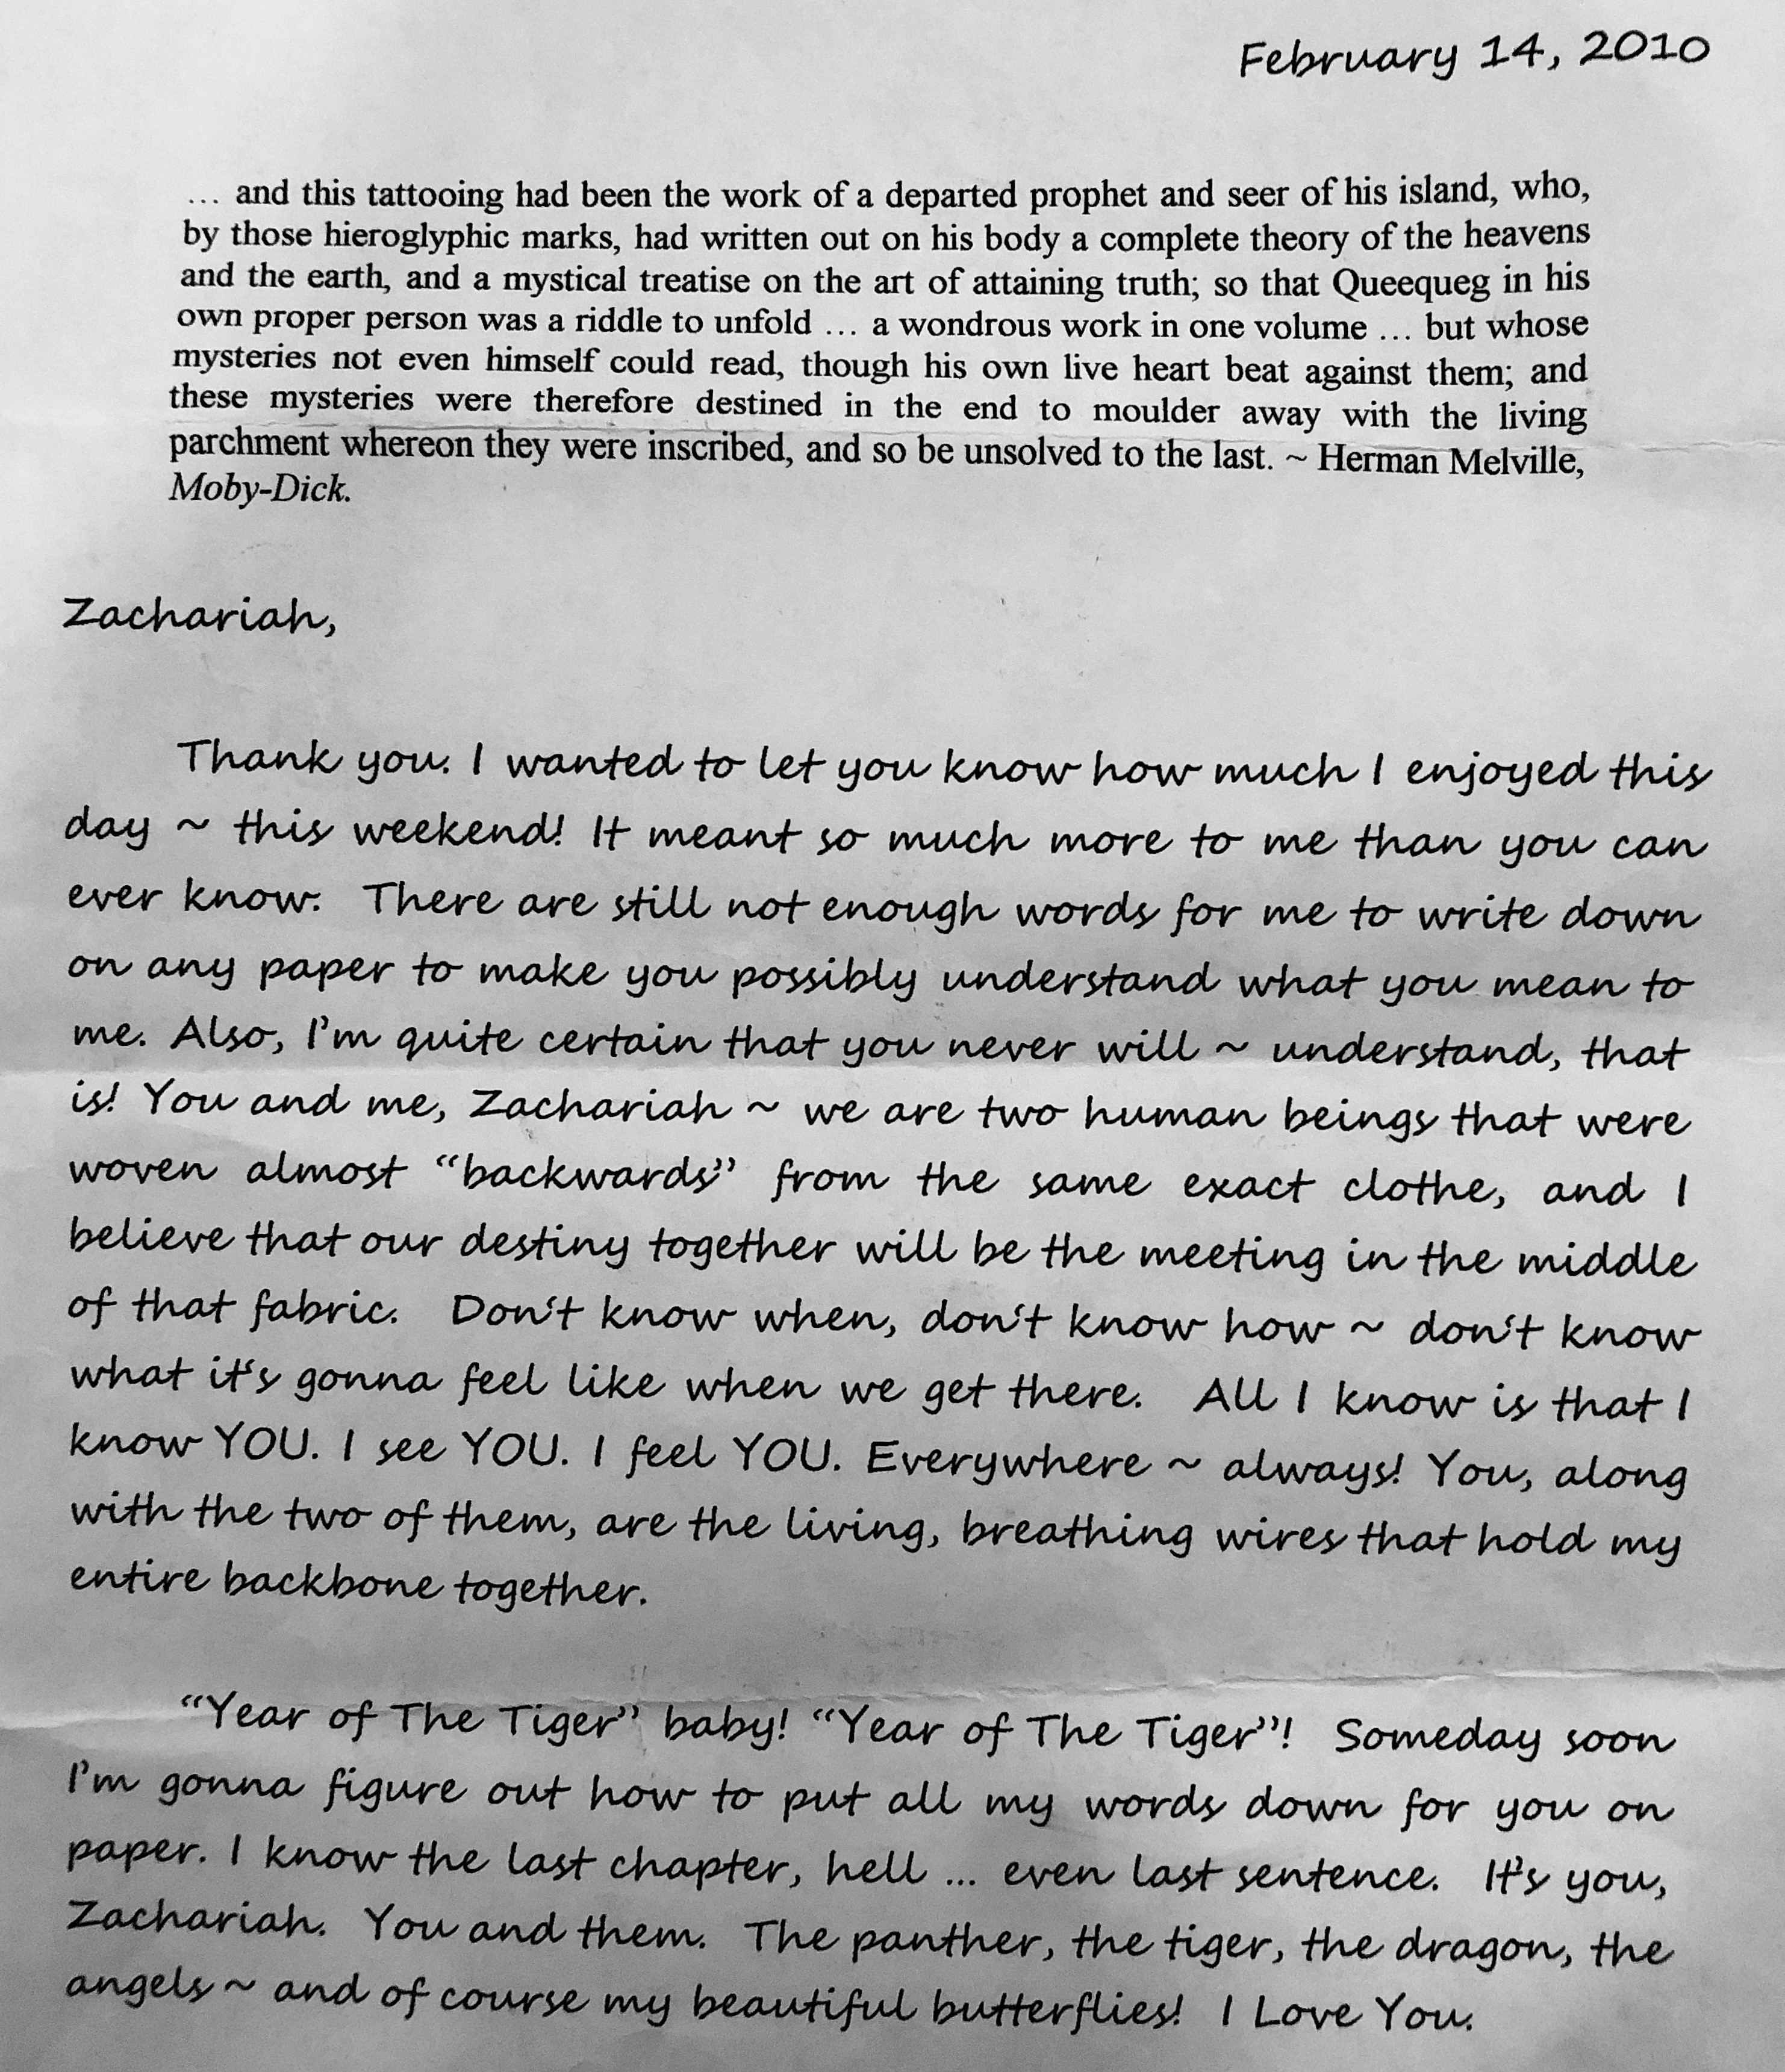 February 14, 2010
... and this tattooing had been the work of a departed prophet and seer of his island, who,
by those hieroglyphic marks, had written out on his body a complete theory of the heavens
and the earth, and a mystical treatise on the art of attaining truth; so that Queequeg in his
own proper person was a riddle to unfold ... a wondrous work in one volume ... but whose
mysteries not even himself could read, though his own live heart beat against them; and
these mysteries were therefore destined in the end to moulder away with the living
parchment whereon they were inscribed, and so be unsolved to the last. ~ Herman Melville,
Moby-Dick.
Zachariah,
Thank you. I wanted to let you know how much I enjoyed this
day ~ this weekend! It meant so much more to me than you can
ever know. There are still not enough words for me to write down
on any paper to make you possibly understand what you mean to
me. Also, I'm quite certain that you never will ~ understand, that
is! You and me, Zachariah ~ we are two human beings that were
woven almost “backwards” from the same exact clothe, and I
believe that our destiny together will be the meeting in the middle
of that fabric. Don't know when, don't know how ~ don't know
what it's gonna feel like when we get there. All I know is that I
know YOU. I see YOU. I feel YOU. Everywhere ~ always! You, along
with the two of them, are the living, breathing wires that hold my
entire backbone together.
“Year of The Tiger” baby! “Year of The Tiger”! Someday soon
I'm gonna figure out how to put all my words down for you on
paper. I know the last chapter, hell ... even last sentence. It's you,
Zachariah. You and them. The panther, the tiger, the dragon, the
angels ~ and of course my beautiful butterflies! I Love You.